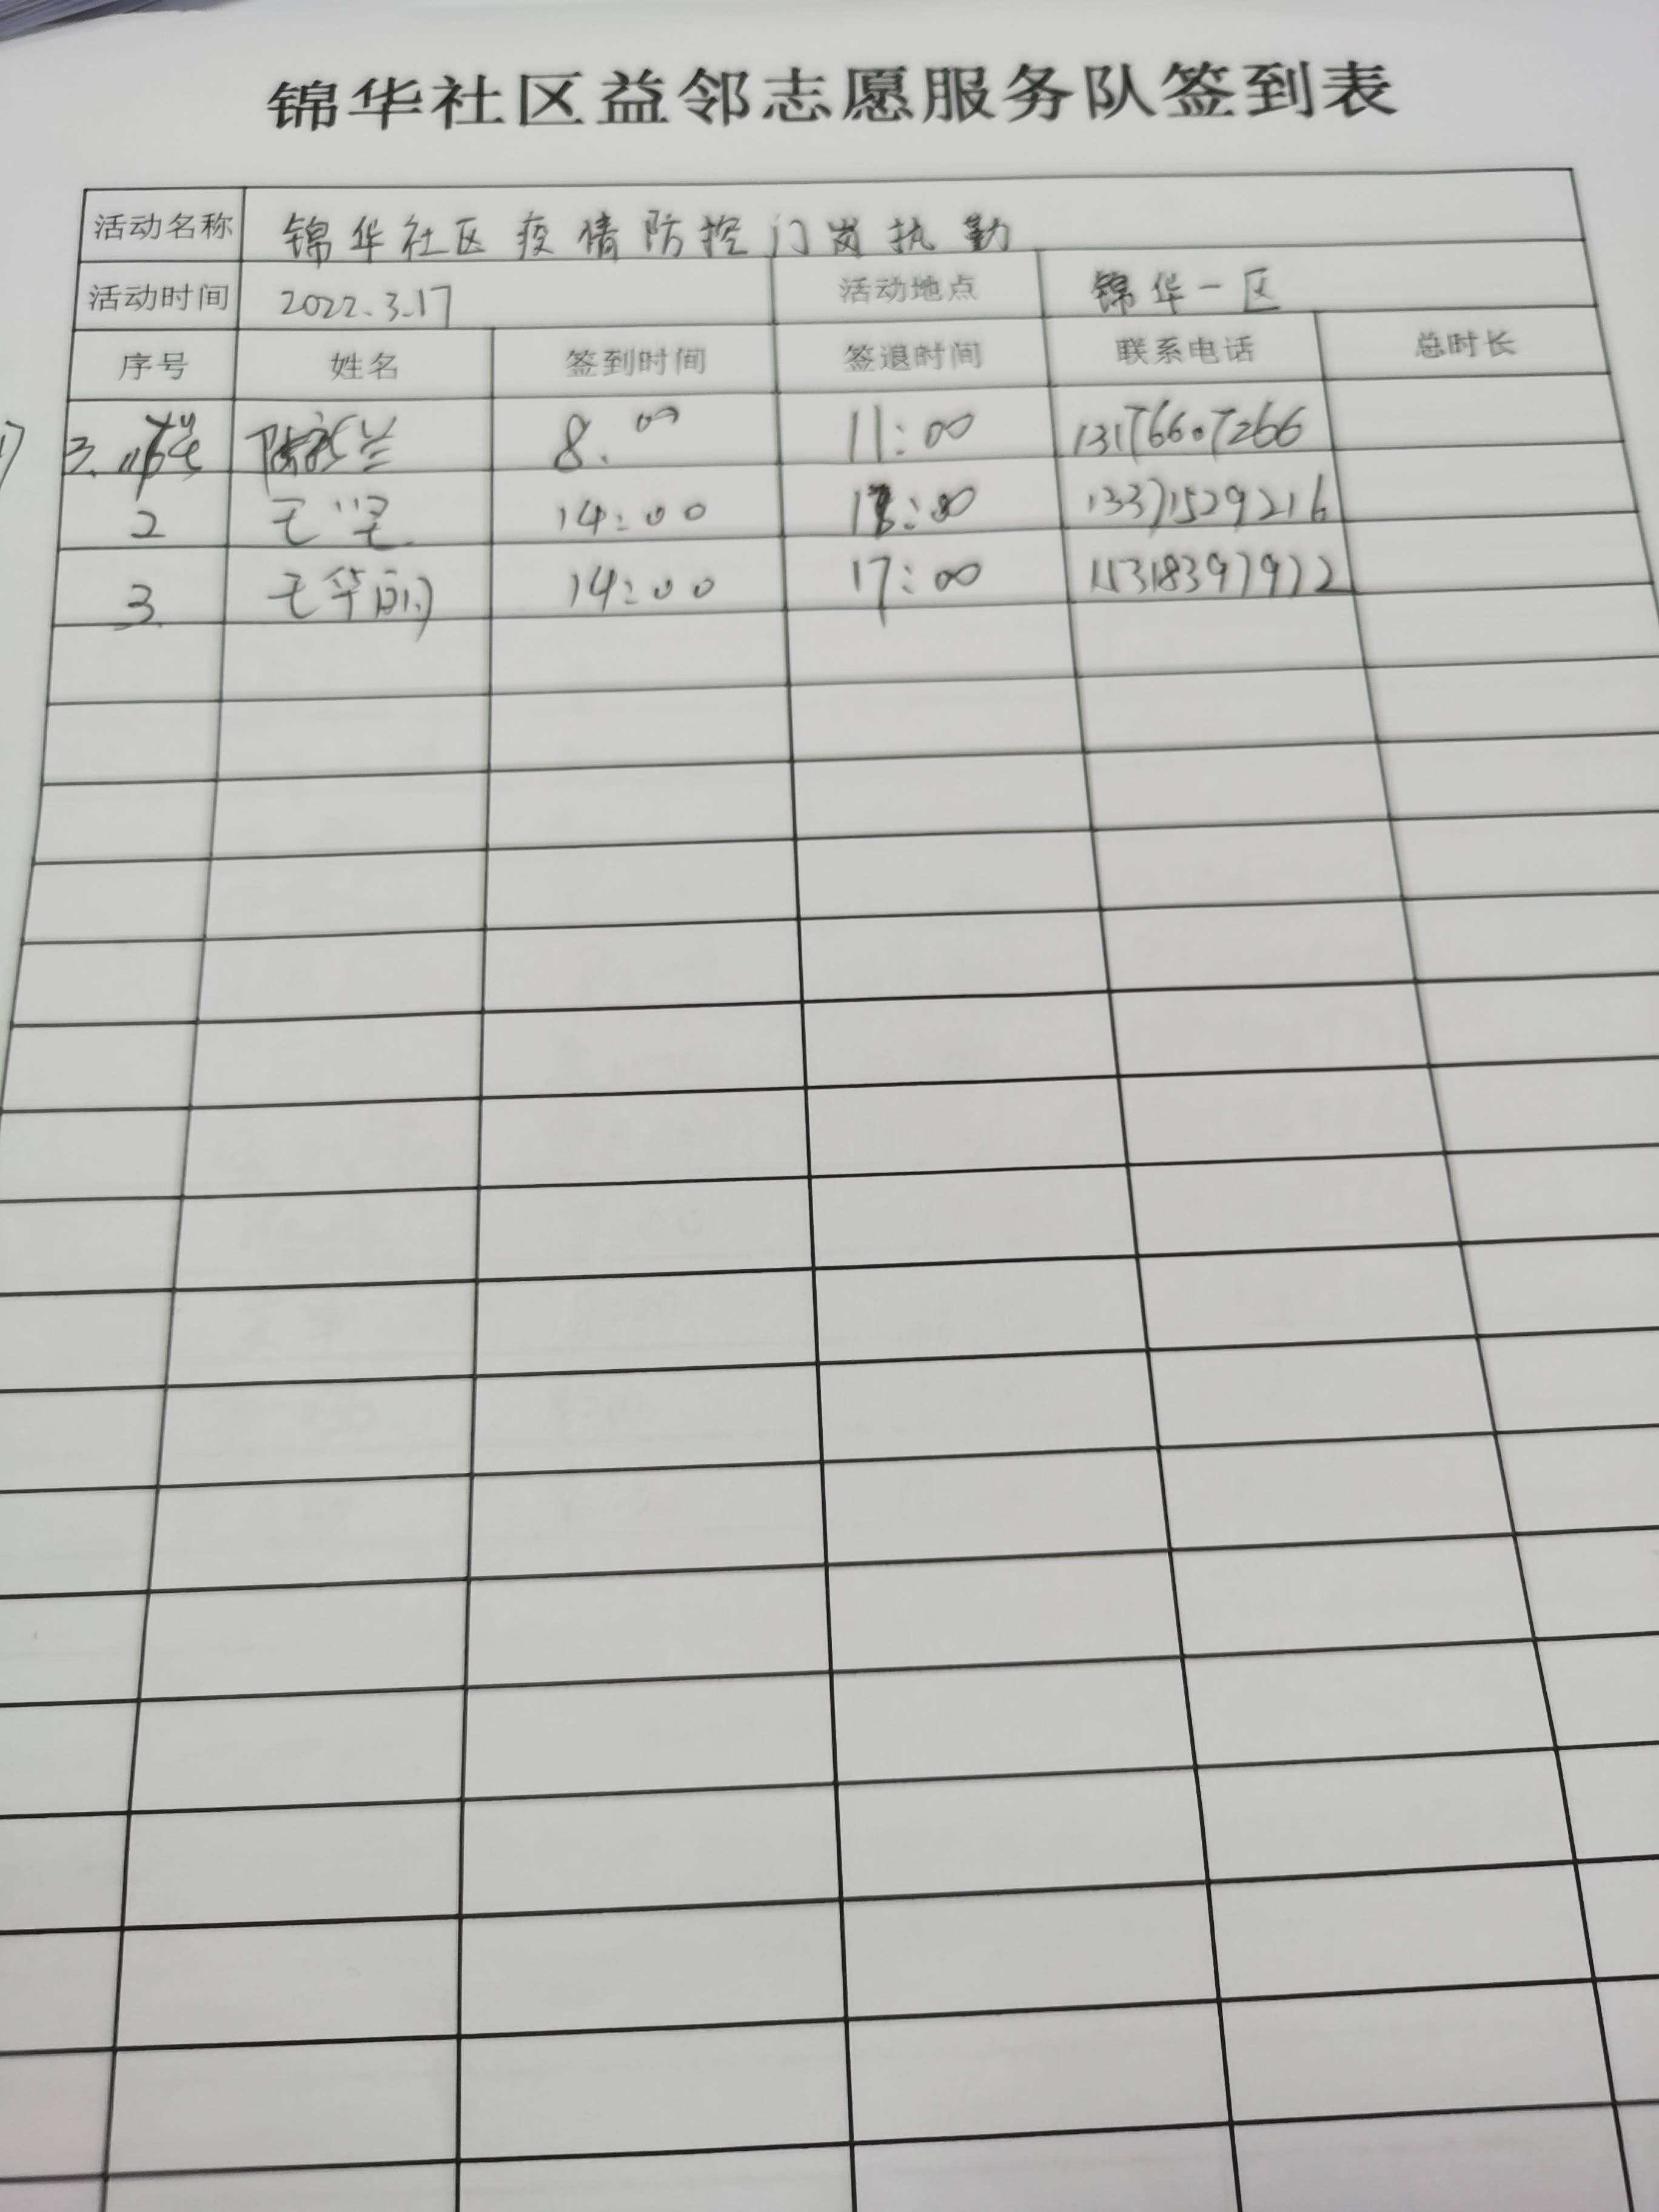 锦华社区益邻志愿服务队签到表
活动名称 锦华社区疫情防控门岗执勤
活动时间 2022.3.17 活动地点 锦华一区
序号 姓名 签到时间 签退时间 联系电话 总时长
3. 陈新兰 8.00 11:00 13176607266
2 王坚 14:00 17:00 13371529216
3 王华丽 14:00 17:00 15318397972